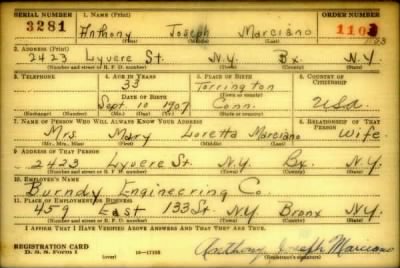 SERIAL NUMBER 1. NAME (Print) ORDER NUMBER
3281 Anthony Joseph Marciano 1103
(First) (Middle) (Last) 1103
2. ADDRESS (Print)
2423 Lyvere St. N.Y. Bx. N.Y.
(Number and street or R. F. D. number) (Town) (County) (State)
3. TELEPHONE 4. AGE IN YEARS 5. PLACE OF BIRTH 6. COUNTRY OF CITIZENSHIP
33 Torrington
DATE OF BIRTH (Town or county)
Sept 10 1907 Conn. USA
(Exchange) (Number) (Mo.) (Day) (Yr.) (State or country)
7. NAME OF PERSON WHO WILL ALWAYS KNOW YOUR ADDRESS 8. RELATIONSHIP OF THAT PERSON
Mrs. Mary Loretta Marciano Wife
(Mr., Mrs., Miss) (First) (Middle) (Last)
9. ADDRESS OF THAT PERSON
2423 Lyvere St. N.Y. Bx. N.Y.
(Number and street or R. F. D. number) (Town) (County) (State)
10. EMPLOYER'S NAME
Burndy Engineering Co.
11. PLACE OF EMPLOYMENT OR BUSINESS
459 East 133 St. N.Y. Bronx N.Y.
(Number and street or R. F. D. number) (Town) (County) (State)
I AFFIRM THAT I HAVE VERIFIED ABOVE ANSWERS AND THAT THEY ARE TRUE.
REGISTRATION CARD Anthony Joseph Marciano
D. S. S. Form 1 (over) (Registrant's signature)